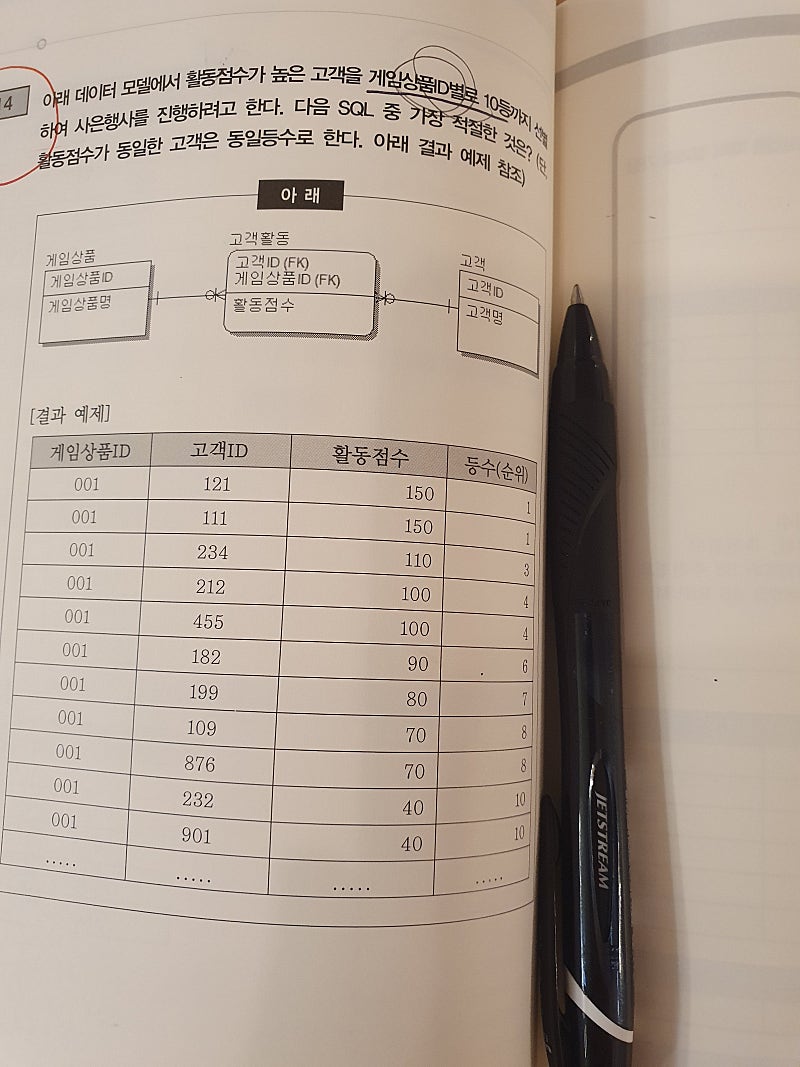 14
아래 데이터 모델에서 활동점수가 높은 고객을 게임상품ID별로 10등까지 선별
하여 사은행사를 진행하려고 한다. 다음 SQL 중 가장 적절한 것은? (단,
활동점수가 동일한 고객은 동일등수로 한다. 아래 결과 예제 참조)
아 래
게임상품 고객활동 고객
게임상품ID 고객ID (FK) 고객ID
게임상품명 게임상품ID (FK) 고객명
활동점수
[결과 예제]
게임상품ID 고객ID 활동점수 등수(순위)
001 121 150 1
001 111 150 1
001 234 110 3
001 212 100 4
001 455 100 4
001 182 90 6
001 199 80 7
001 109 70 8
001 876 70 8
001 232 40 10
001 901 40 10
..... ..... ..... .....
JETSTREAM